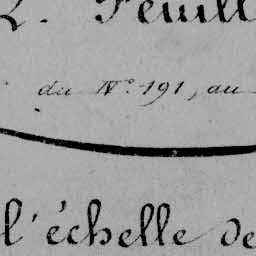 2. Feuill
du N° 191, au
l'échelle de